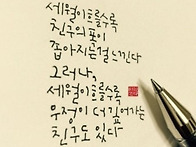 세월이 흐를수록
친구의 폭이
좁아지는걸 느낀다
그러나,
세월이 흐를수록
우정이 더 깊어가는
친구도 있다